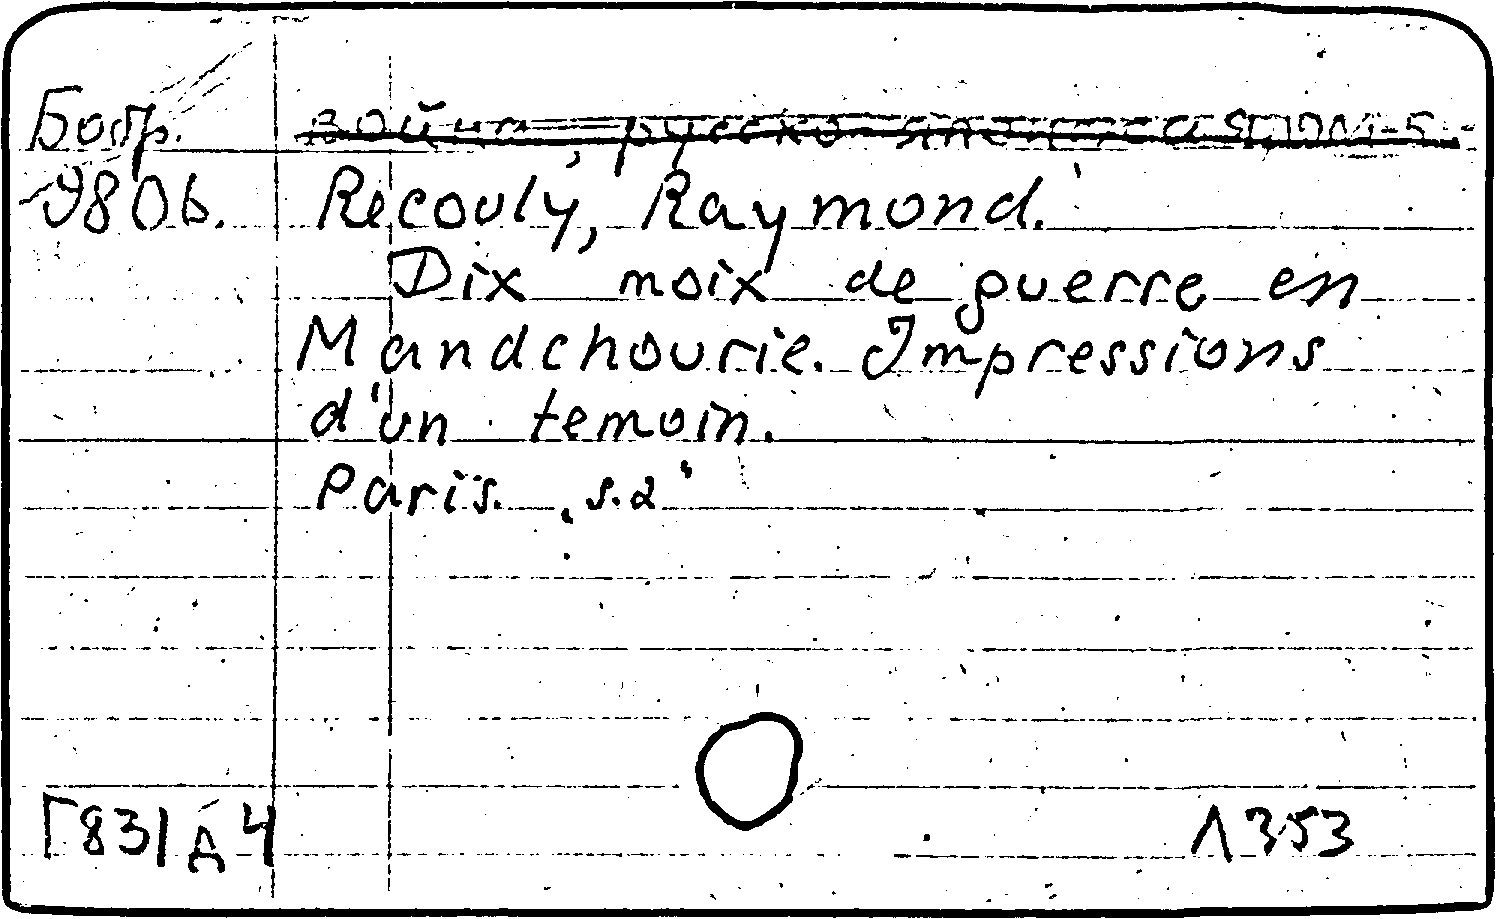 Бобр. война, русско-японская, 1904-5
980б. Recouly, Raymond.
Dix moix de guerre en
Mandchourie. Impressions
d'un temoin.
Paris. s.a.
Г831 д4 Л353